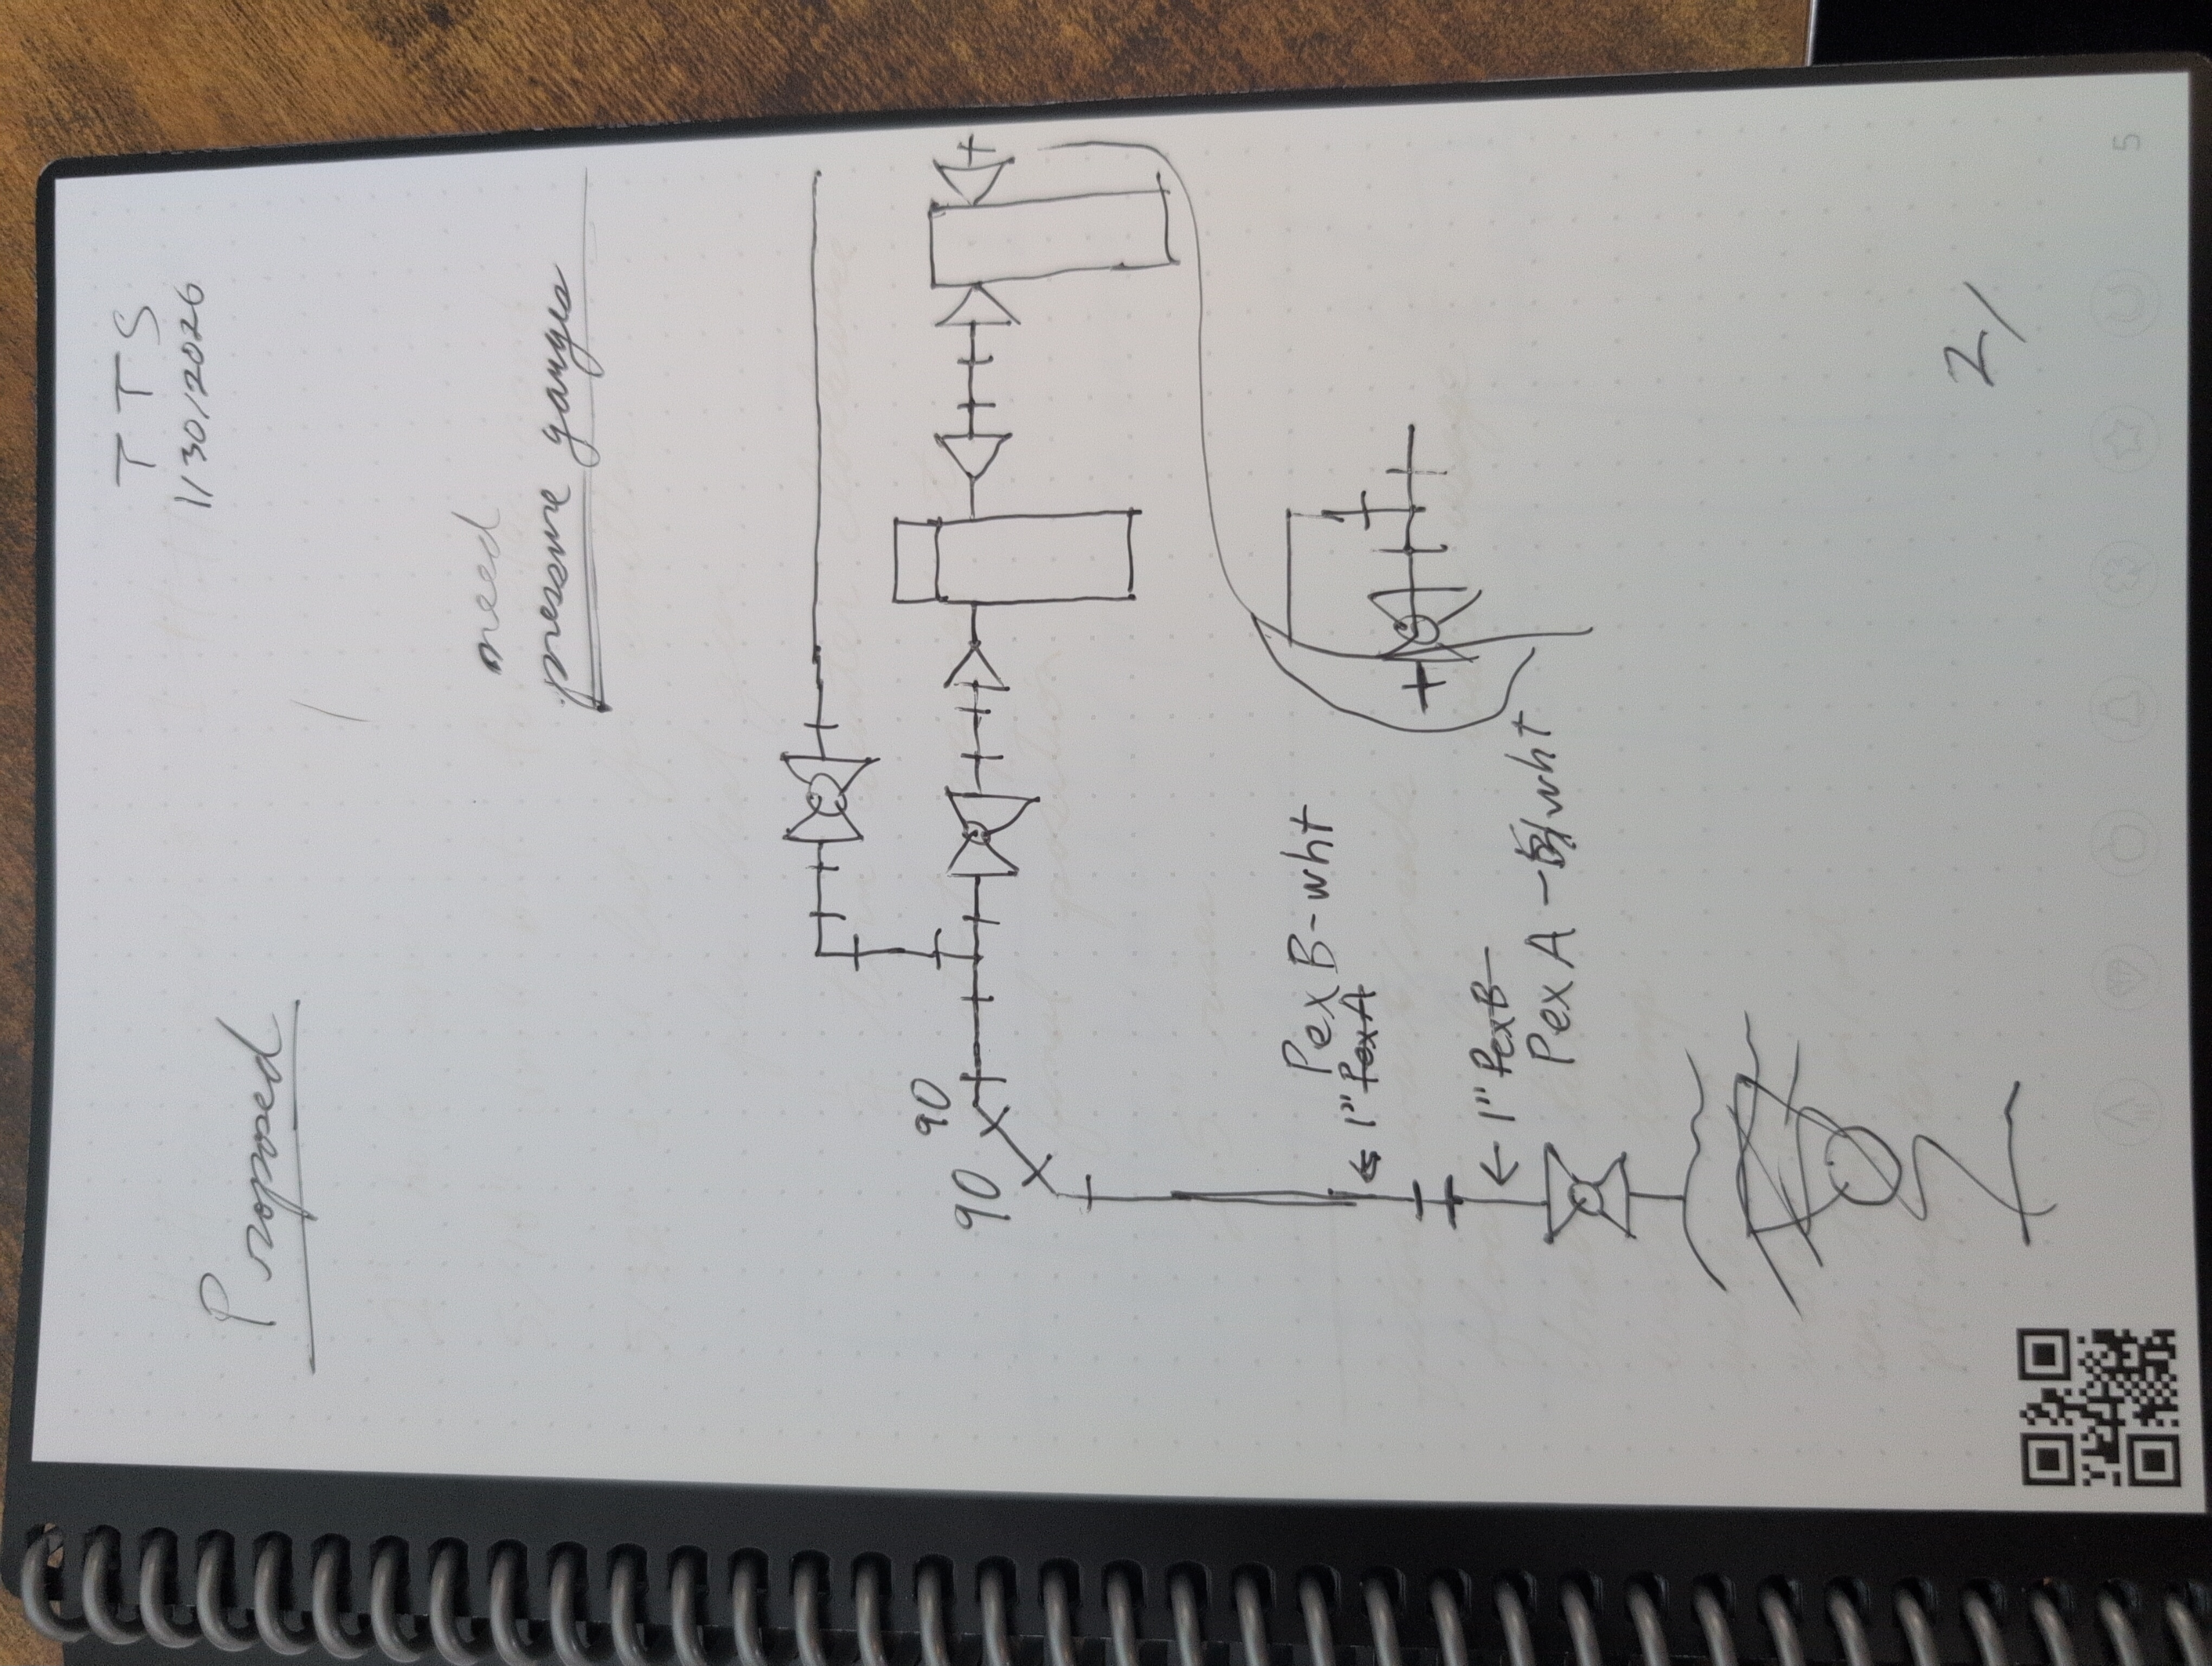 Proposed
T T S
1/30/2026
need
pressure gauges
90
90
Pex B-wht
← 1" PexA
← 1" PexB
Pex A - wht
2/
5